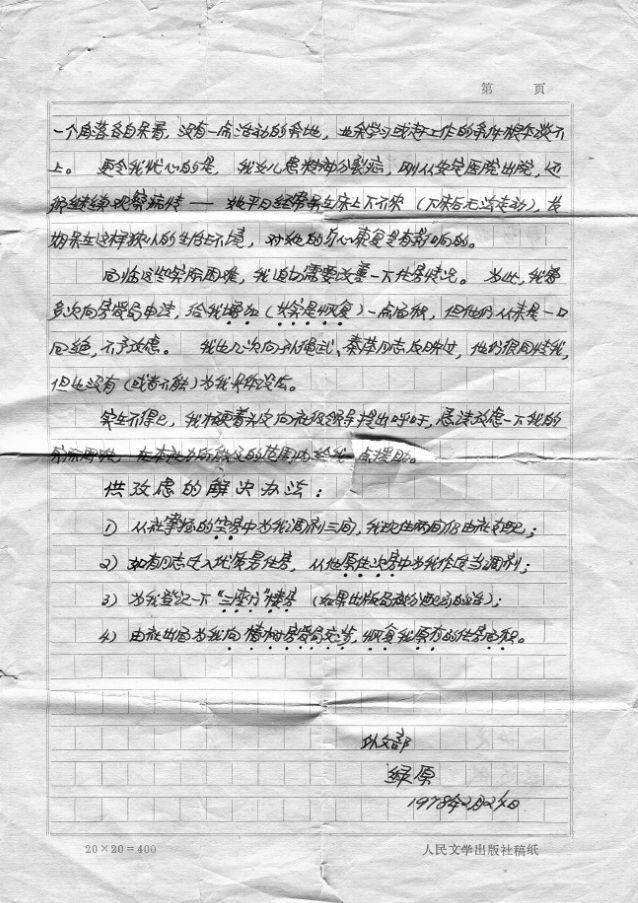 第 页
一个角落各自呆着，没有一席活动的余地，业余学习或赶工作的条件根本谈不
上。 更令我忧心的是，我女儿患精神分裂症，刚从安定医院出院，还
须继续观察病情——她平日经常呆在床上不下来（下床后无法走动），长
期呆在这样狭小的生活环境，对她的身心康复是有影响的。
面临这些实际困难，我迫切需要改善一下住房情况。 为此，我曾
多次向房管局申请，给我增加（其实是恢复）一点面积，但他们从来是一口
回绝，不予考虑。 我也几次向孙偘武、秦萍同志反映过，他们很同情我，
但也没有（或者不能）为我想办法。
实在不得已，我才硬着头皮向社领导提出呼吁，恳请考虑一下我的
实际困难，在本社力所能及的范围内给我一点援助。
供考虑的解决办法：
1）从社掌握的空房中为我调剂三间，我现住两间仍由社支配；
2）如有同志迁入优等居住房，从他原住次房中为我作适当调剂；
3）为我登记一下“三座门”楼房（如果出版局被分配到的话）；
4）由社出面为我向椿树房管局交涉，恢复我原有的住房面积。
外文部
绿原
1978年2月24日
20×20=400
人民文学出版社稿纸